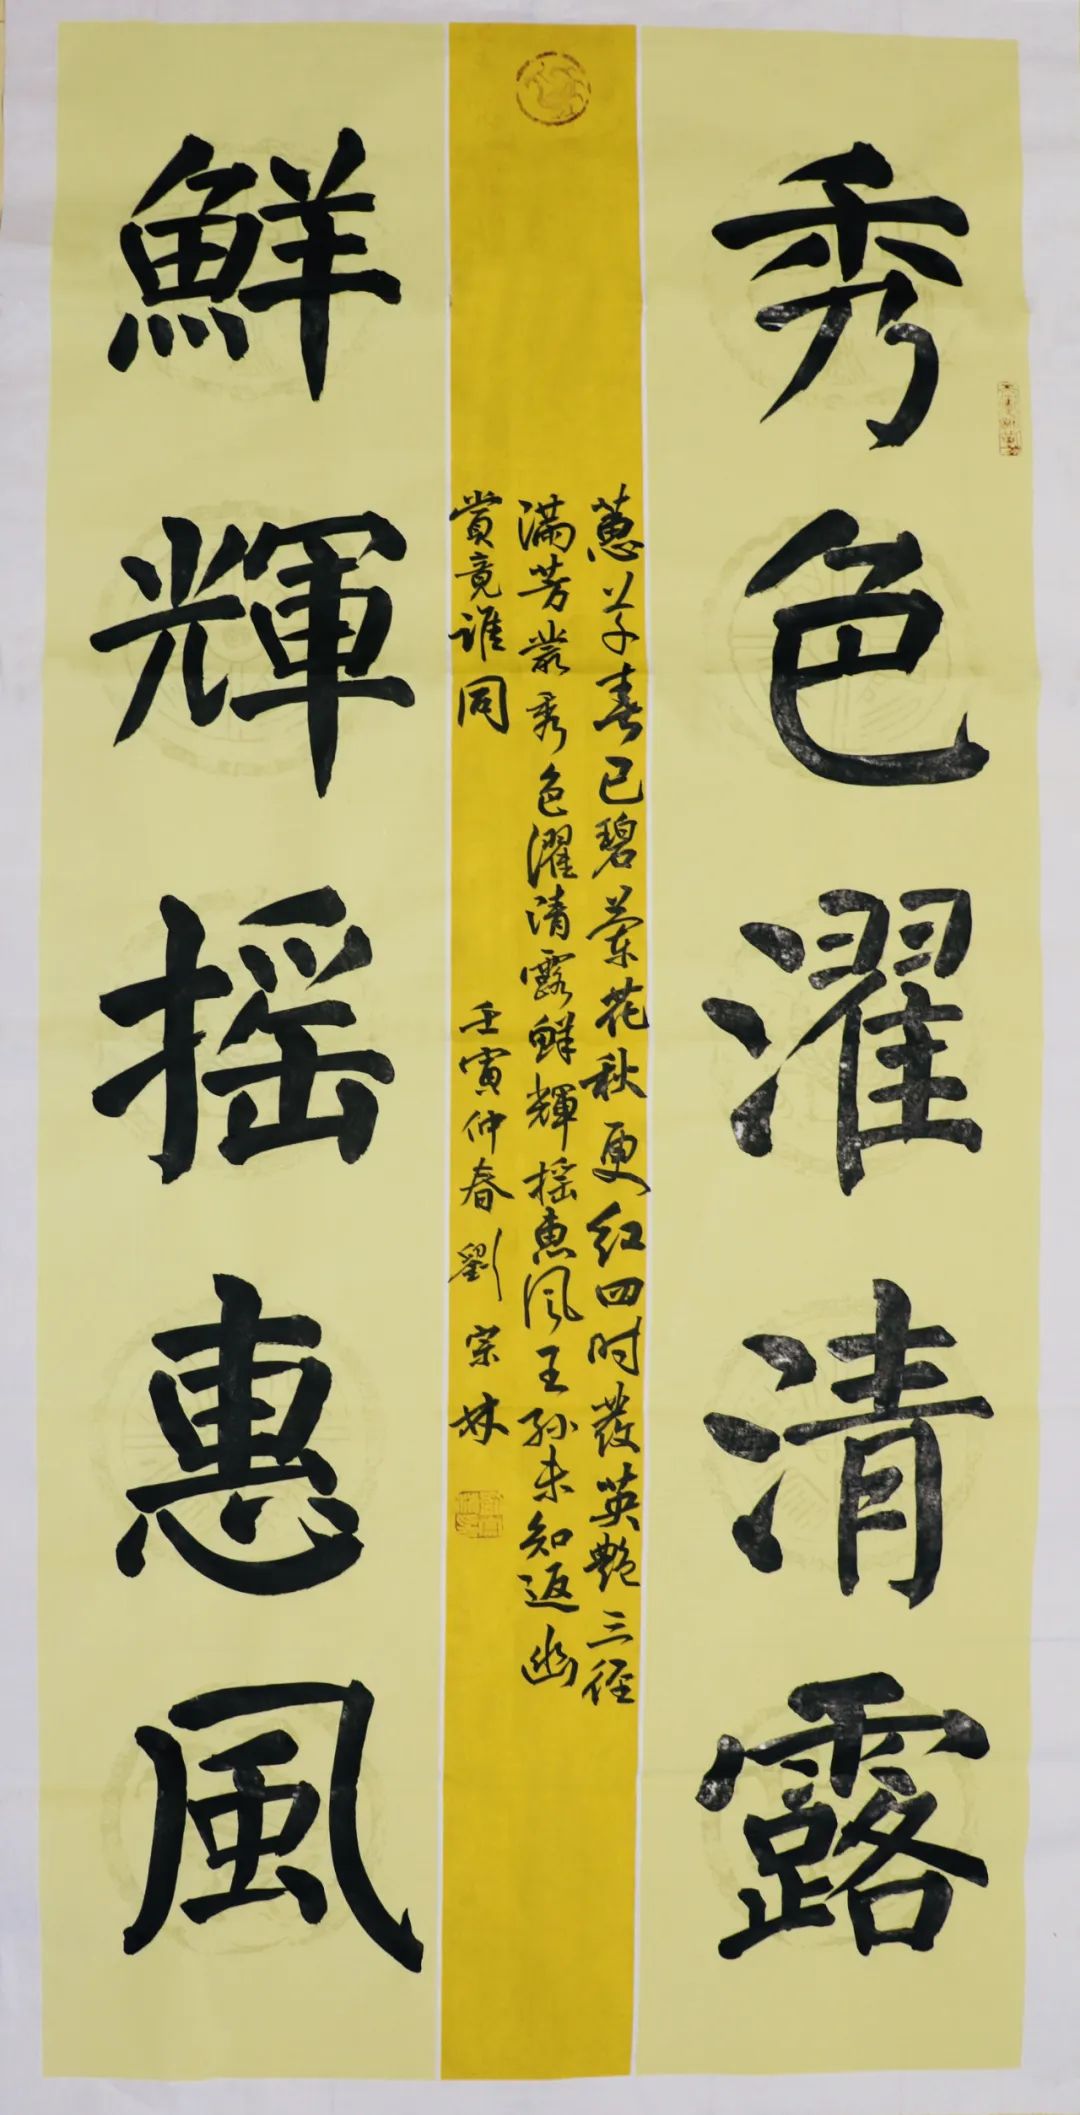 秀色濯清露
蕙草春已碧蘭花秋更红四时發英艷三径
满芳叢秀色濯清露鮮輝摇惠风王孙未知返幽
赏竟谁同
壬寅仲春劉宗林
鮮輝摇惠風